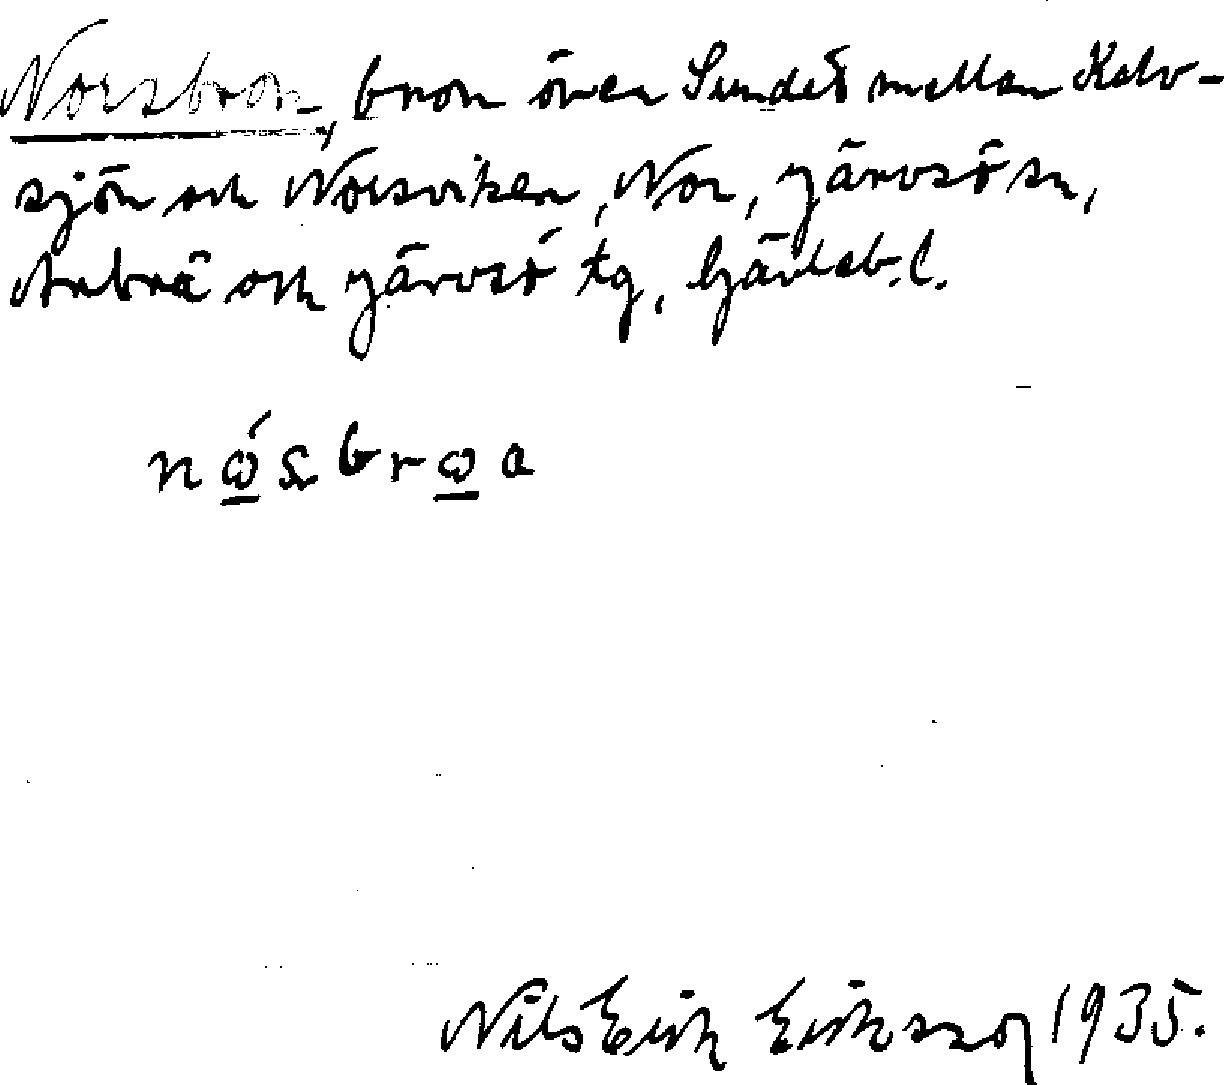 Norsbron, bron över Sundet mellan Kalv-
sjön och Norsviken, Nor, Järvsö sn,
Arbrå och Järvsö tg, Gävleb. l.
nǫ́sbrǫa
Nils Erik Eriksson 1935.